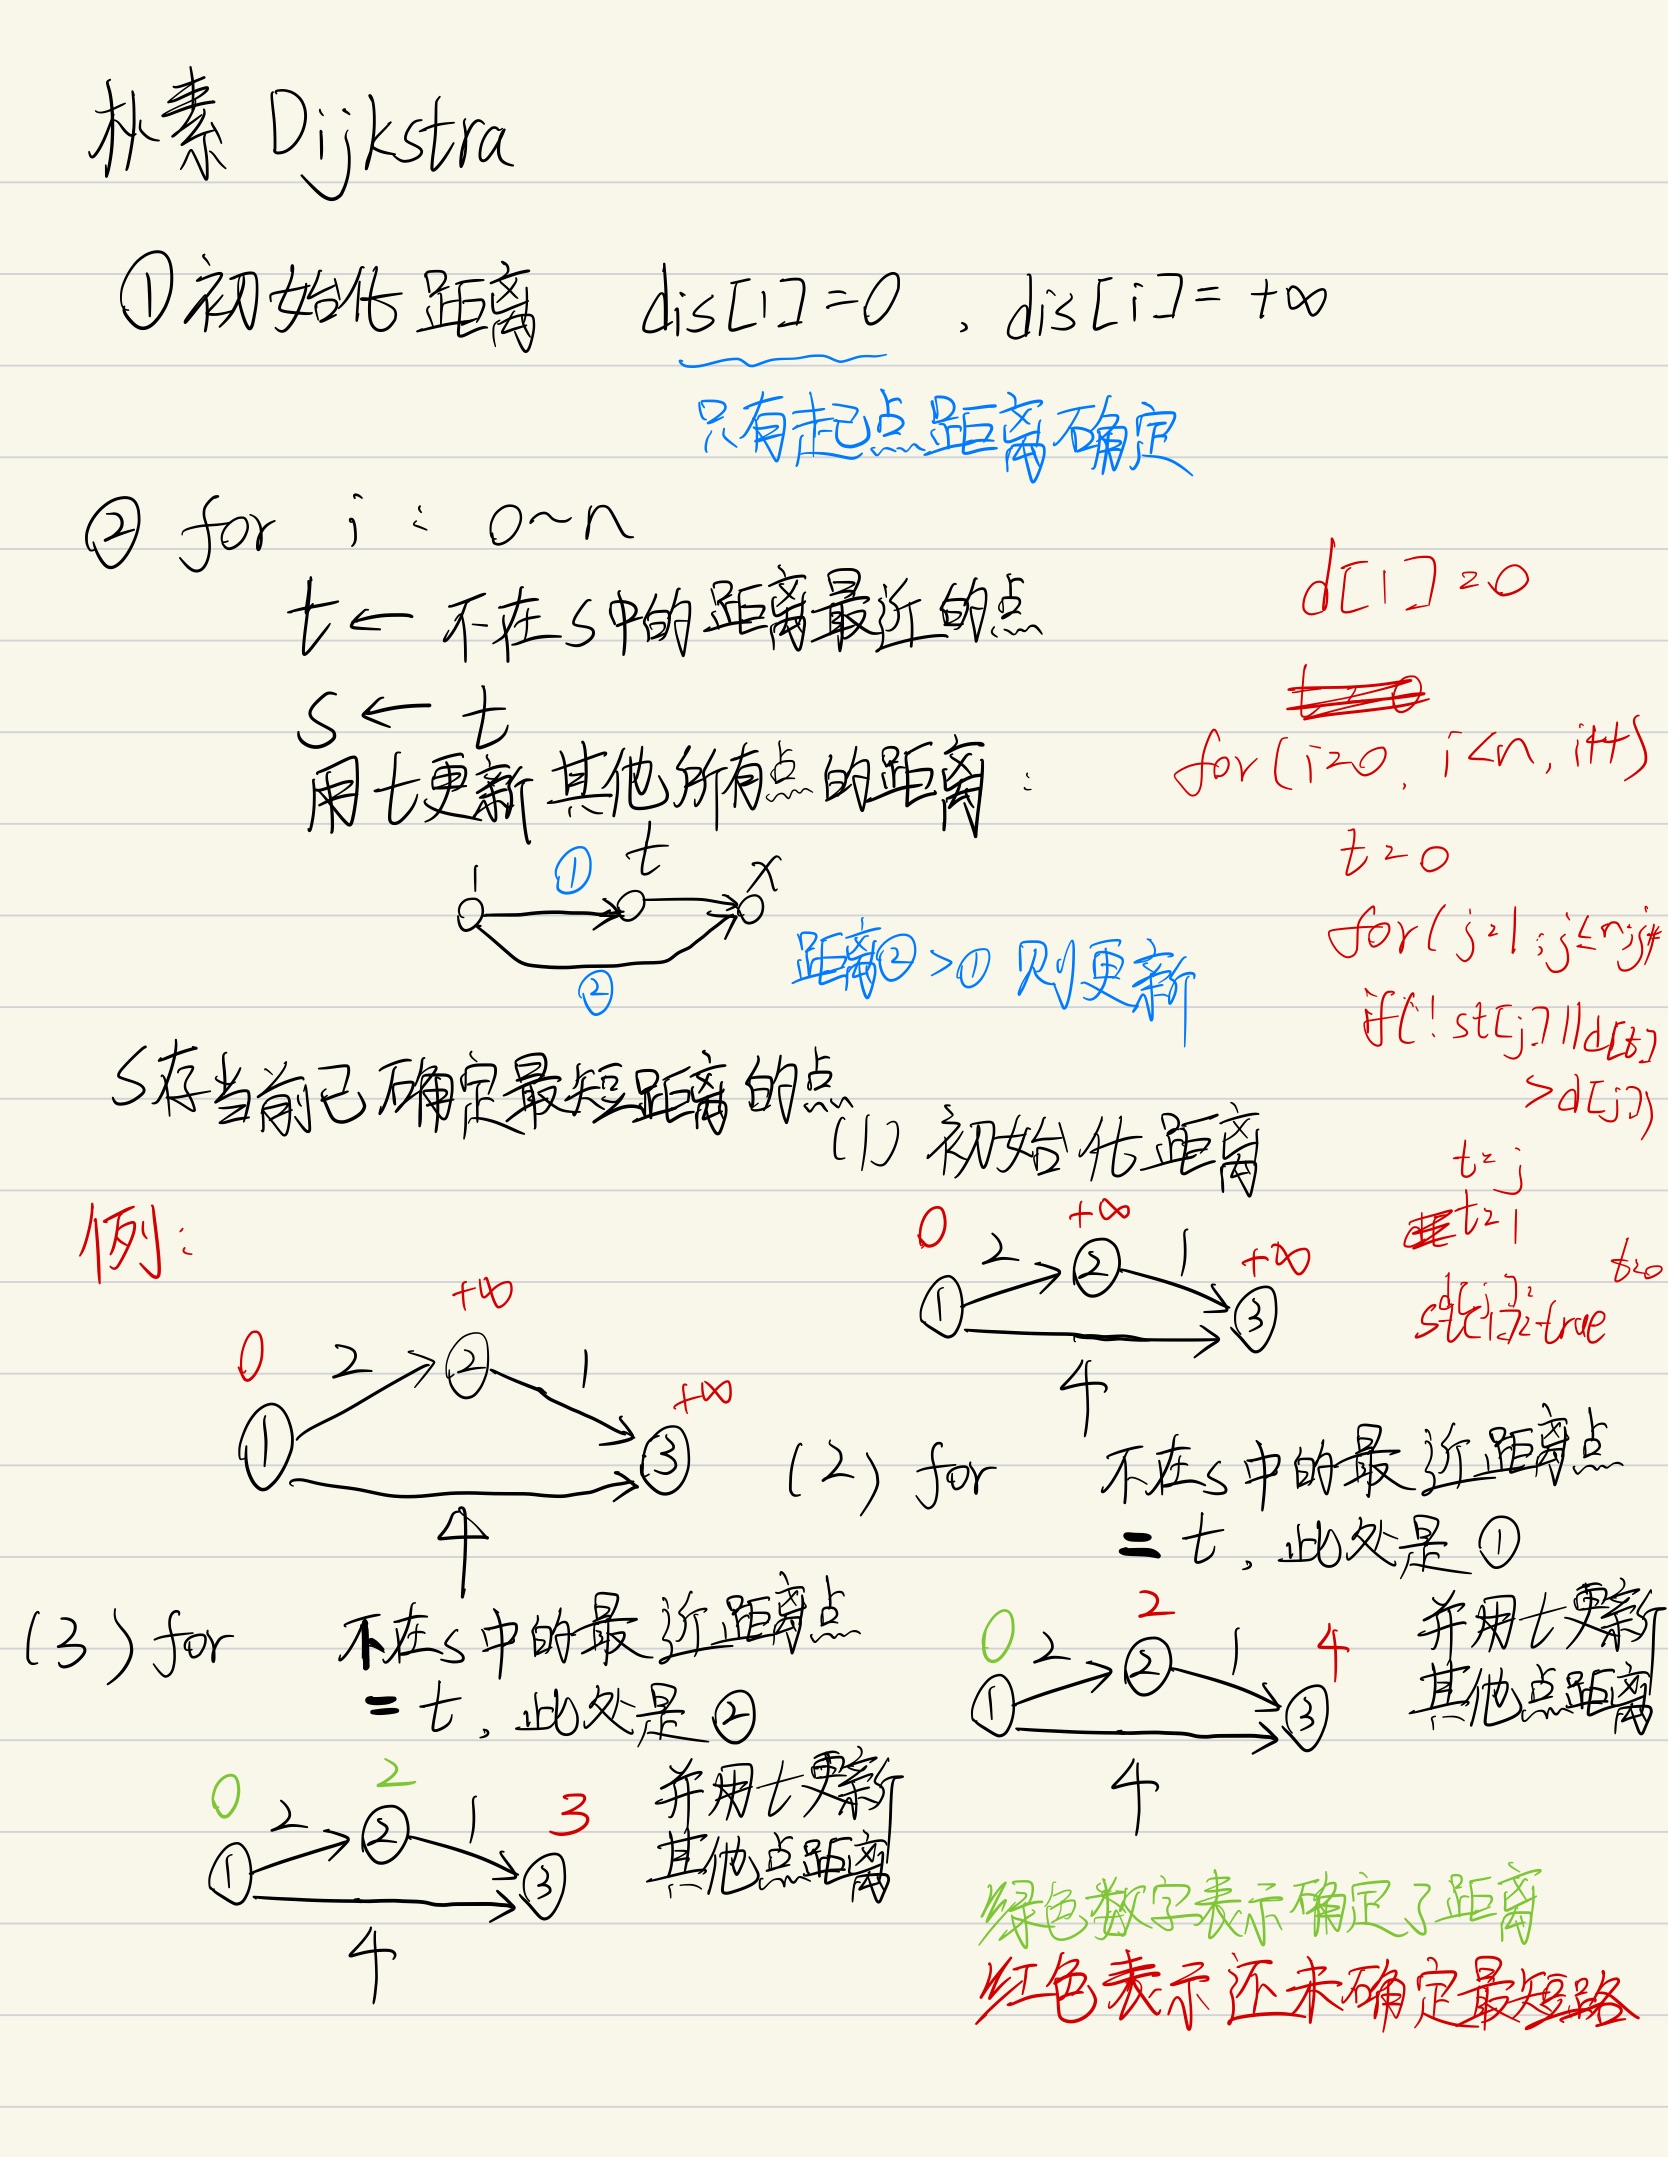 朴素 Dijkstra
①初始化距离 dis[1]=0 , dis[i]= +∞
只有起点距离确定
② for i : 0~n
t ← 不在s中的距离最近的点
S ← t
用t更新其他所有点的距离:
1 ① t x
②
距离②>① 则更新
S存当前已确定最短距离的点
d[1]=0
for(i=0, i<n, i++)
t=0
for(j=1;j≤n;j++
if(!st[j]||d[t]
>d[j])
t=j
t=1
t=0
d[j]=
st[1]=true
例:
0 2 +∞ 1 +∞
① ② ③
4
(1) 初始化距离
0 2 +∞ 1 +∞
① ② ③
4
(2) for 不在s中的最近距离点
= t, 此处是①
0 2 2 1 4
① ② ③
4
并用t更新
其他点距离
(3) for 不在s中的最近距离点
= t, 此处是②
0 2 2 1 3
① ② ③
4
并用t更新
其他点距离
绿色数字表示确定了距离
红色表示还未确定最短路